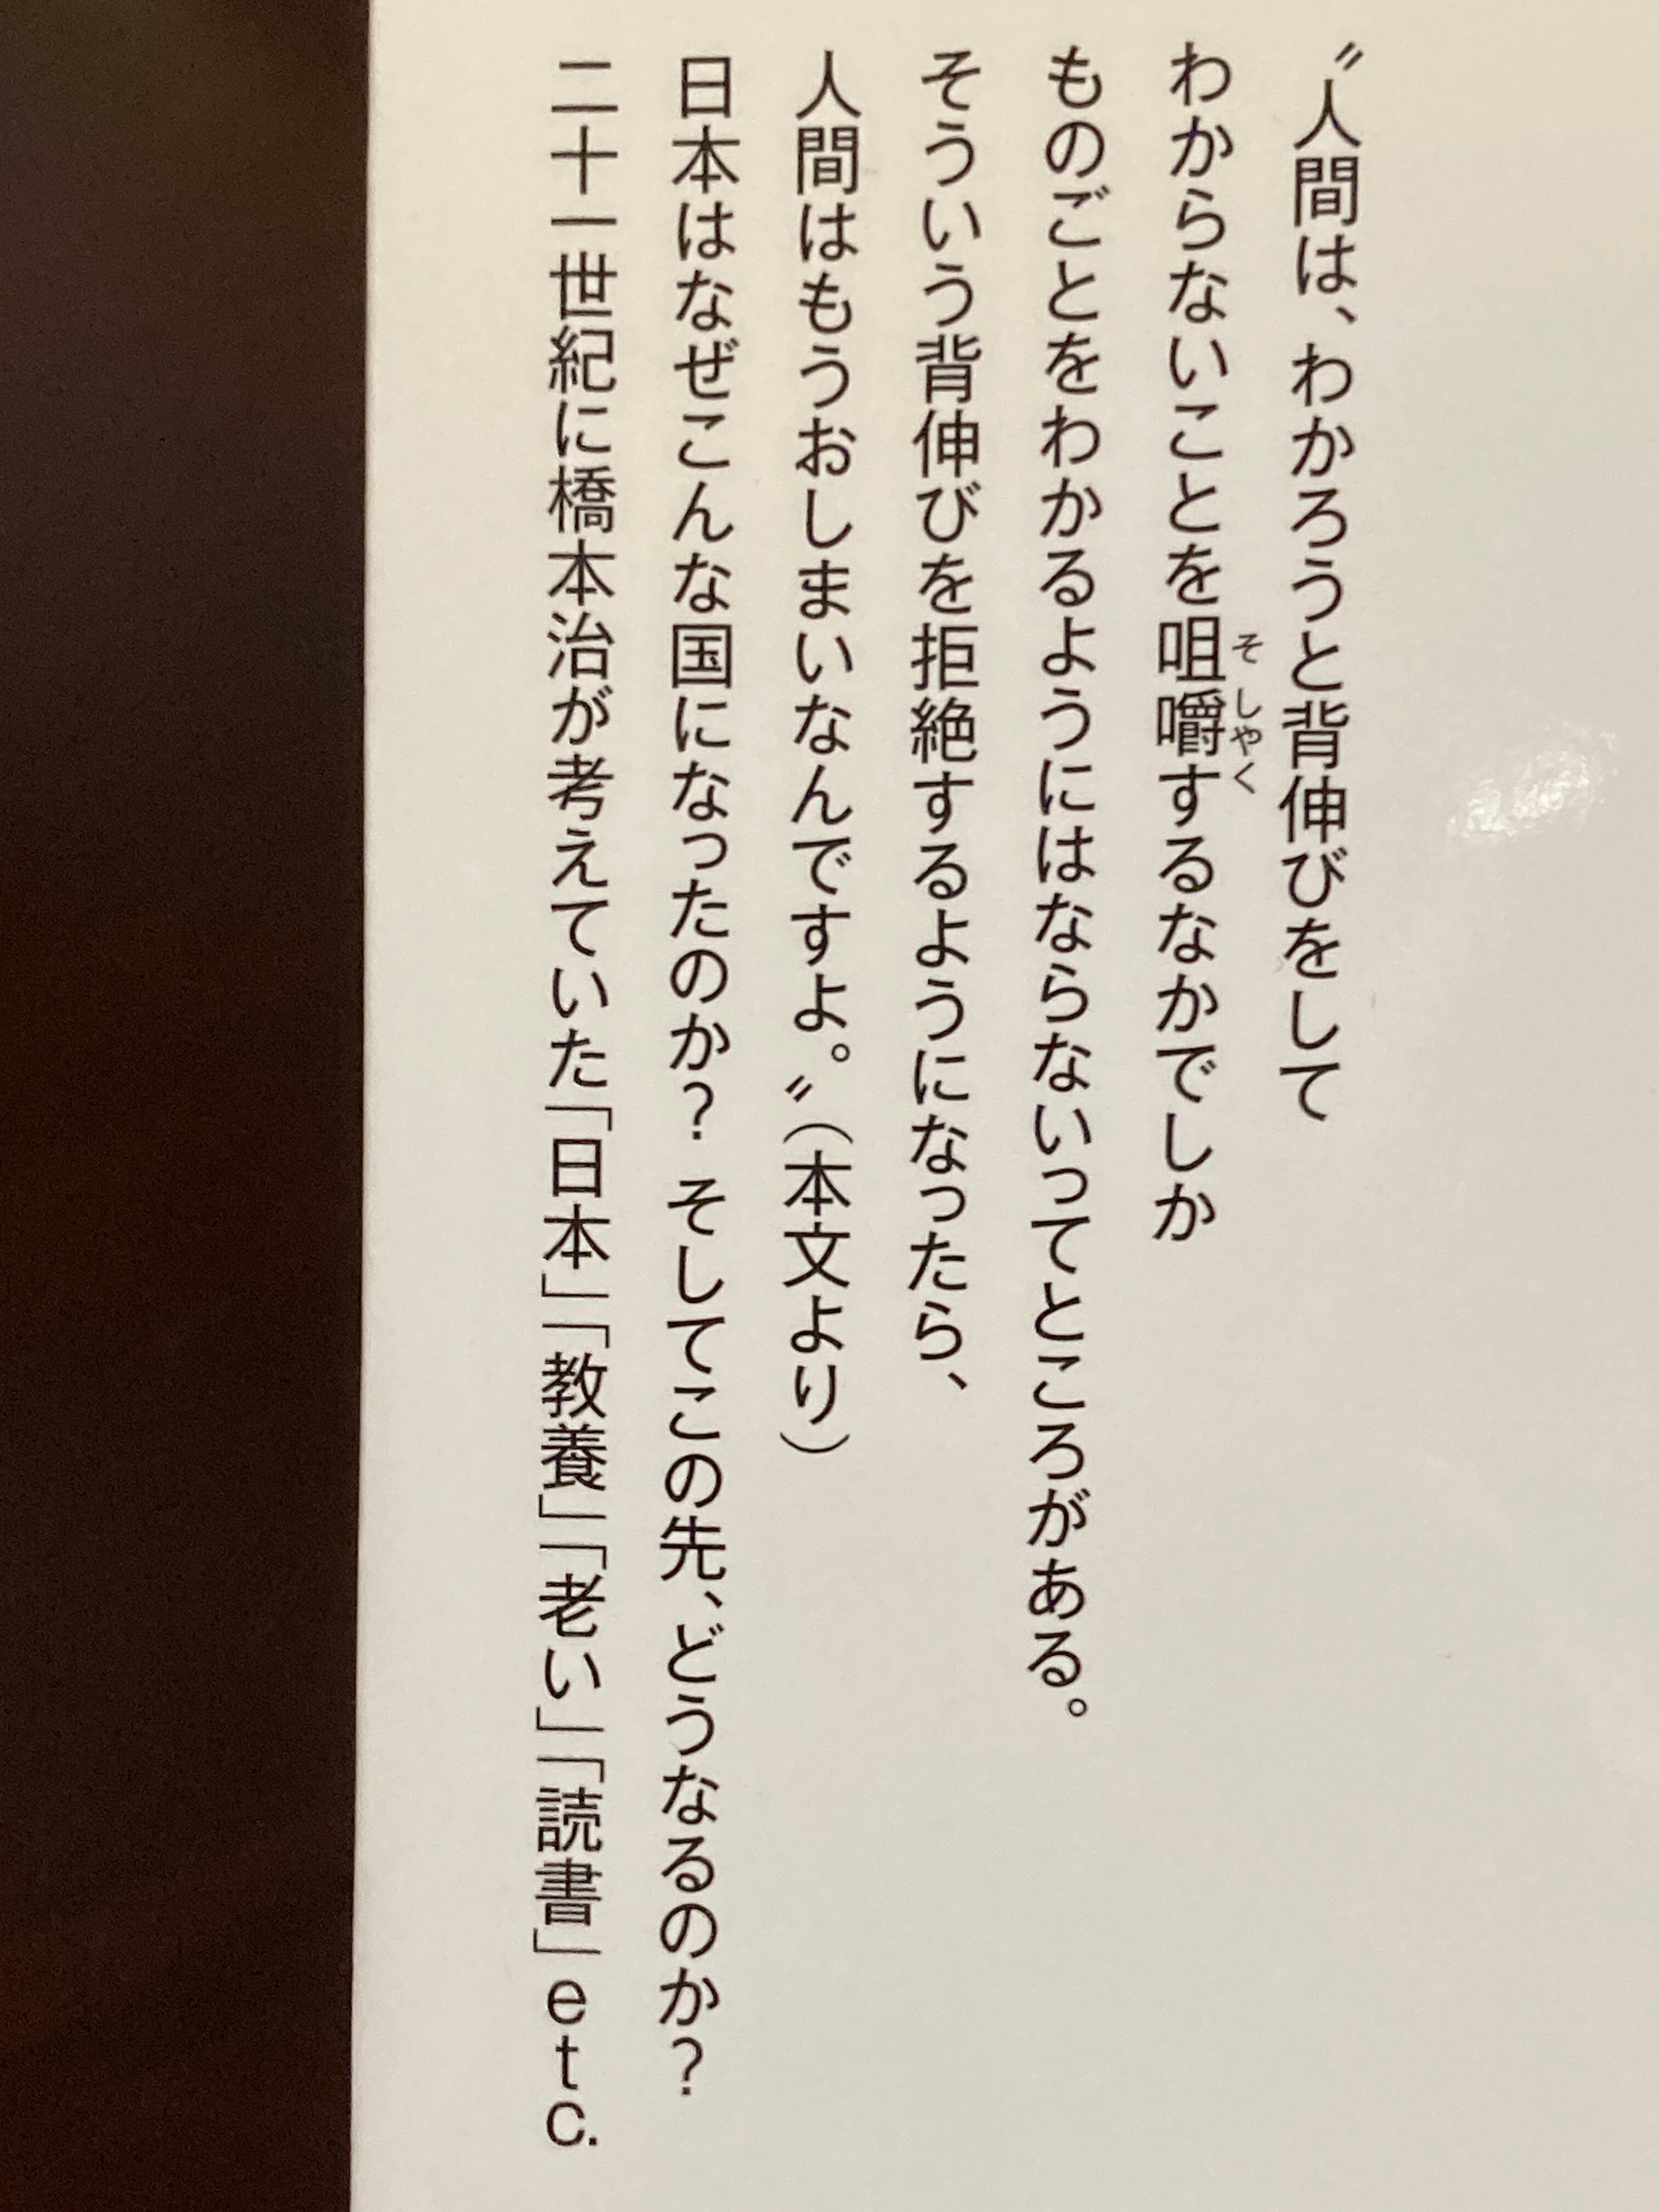 〝人間は、わかろうと背伸びをして
わからないことを咀嚼するなかでしか
そしやく
ものごとをわかるようにはならないってところがある。
そういう背伸びを拒絶するようになったら、
人間はもうおしまいなんですよ。〟（本文より）
日本はなぜこんな国になったのか？ そしてこの先、どうなるのか？
二十一世紀に橋本治が考えていた「日本」「教養」「老い」「読書」etc.